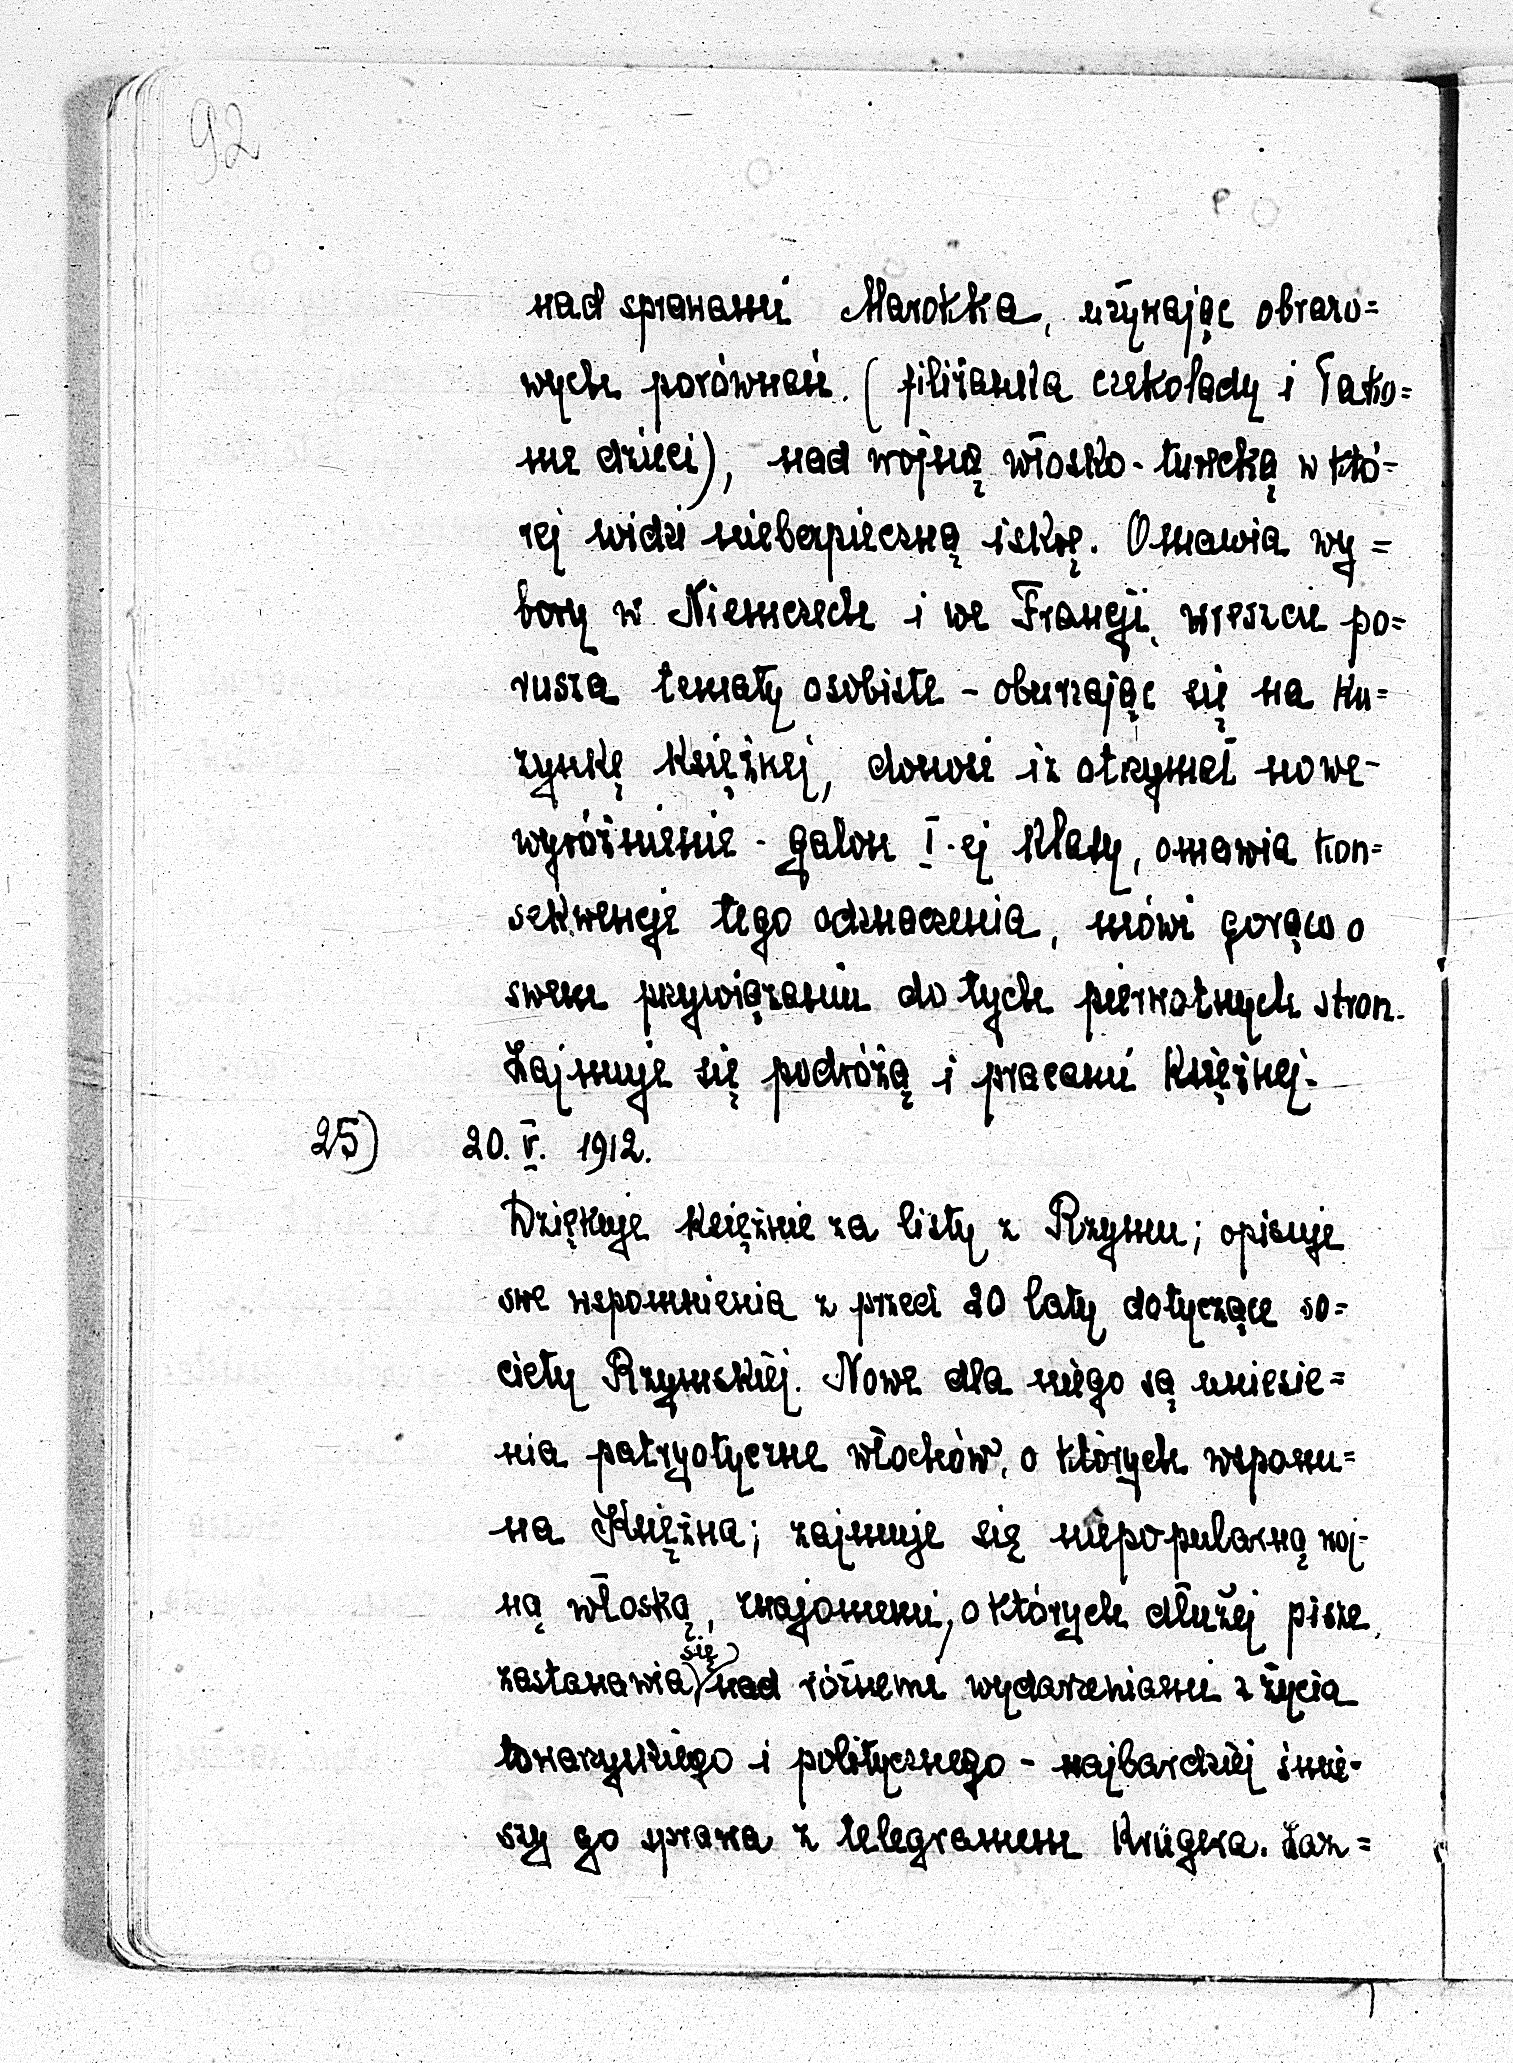 92
nad sprawami Marokka, używając obrazo=
wych porównań. (filiżanka czekolady i łako=
me dzieci), nad wojną włosko-turecką w któ-
rej widzi niebezpieczną iskrę. Omawia wy=
bory w Niemczech i we Francji, wreszcie po=
rusza tematy osobiste - oburzając się na ku=
zynkę Księżnej, donosi iż otrzymał nowe-
wyróżnienie - galon I-ej klasy, omawia kon=
sekwencje tego odznaczenia, mówi gorąco o
swem przywiązaniu do tych pierwotnych stron.
Zajmuje się podróżą i pracami Księżnej.
25) 20. V. 1912.
Dziękuje Księżnie za listy z Rzymu; opisuje
swe wspomnienia z przed 20 laty dotyczące so=
ciety Rzymskiej. Nowe dla niego są uniesie=
nia patryotyczne włochów, o których wspom=
na Księżna; zajmuje się niepopularną woj-
ną włoską, znajomemi, o których dłużej pisze,
zastanawia się nad różnemi wydarzeniami z życia
towarzyskiego i politycznego - najbardziej śmie-
szy go sprawa z telegramem Krügera. Zaz=